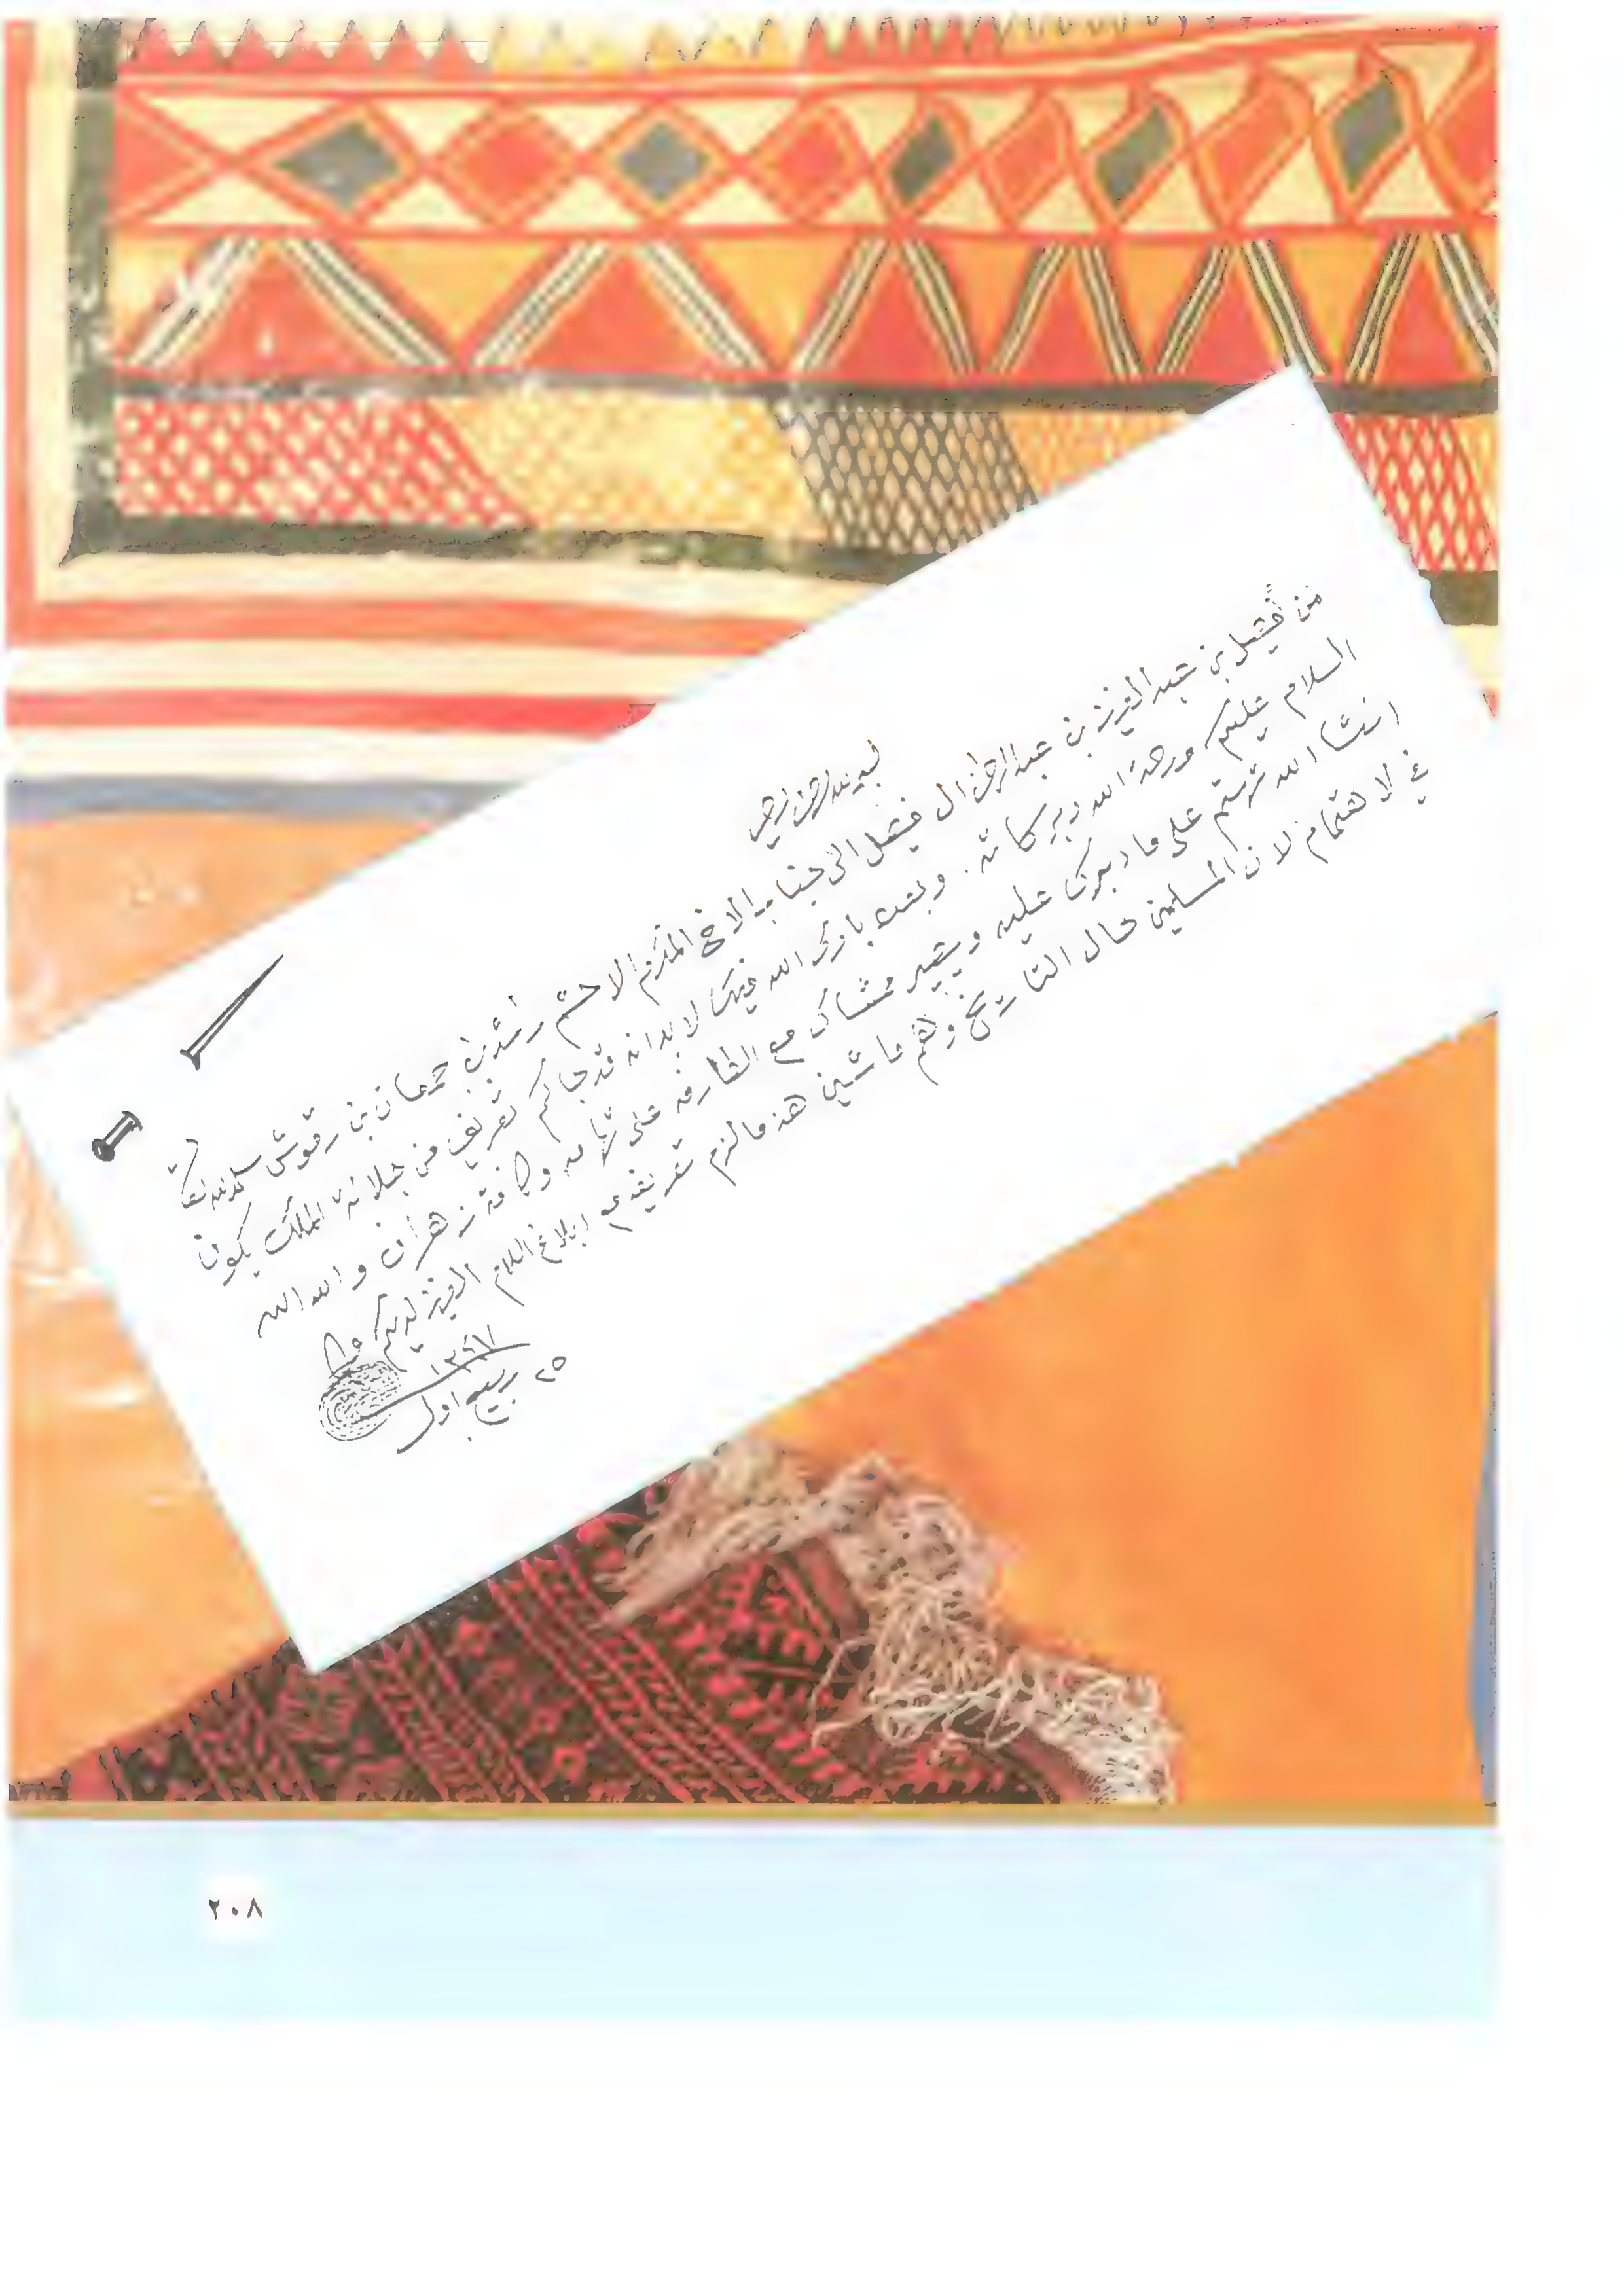 بسم الله الرحمن الرحيم
من فيصل بن عبدالعزيز بن عبدالرحمن ال فيصل الى جناب الاخ المكرم الاحشم راشد بن جمعان بن رقوش سلمه الله تعالى
السلام عليكم ورحمة الله وبركاته . وبعده بارك الله فيك لابد انه قد جاكم تعريف من جلالة الملك يكون
انشا الله ترستم على ما دبرك عليه ويصير ممشاك مع الطارفه على تهامه وكافة زهران والله الله
في لاهتمام لان المسلمين حال التاريخ وهم ماشين هذ مالزم تعريفه مع ابلاغ السلام العزيز لديكم
٢٥ ربيع اول
٢٠٨